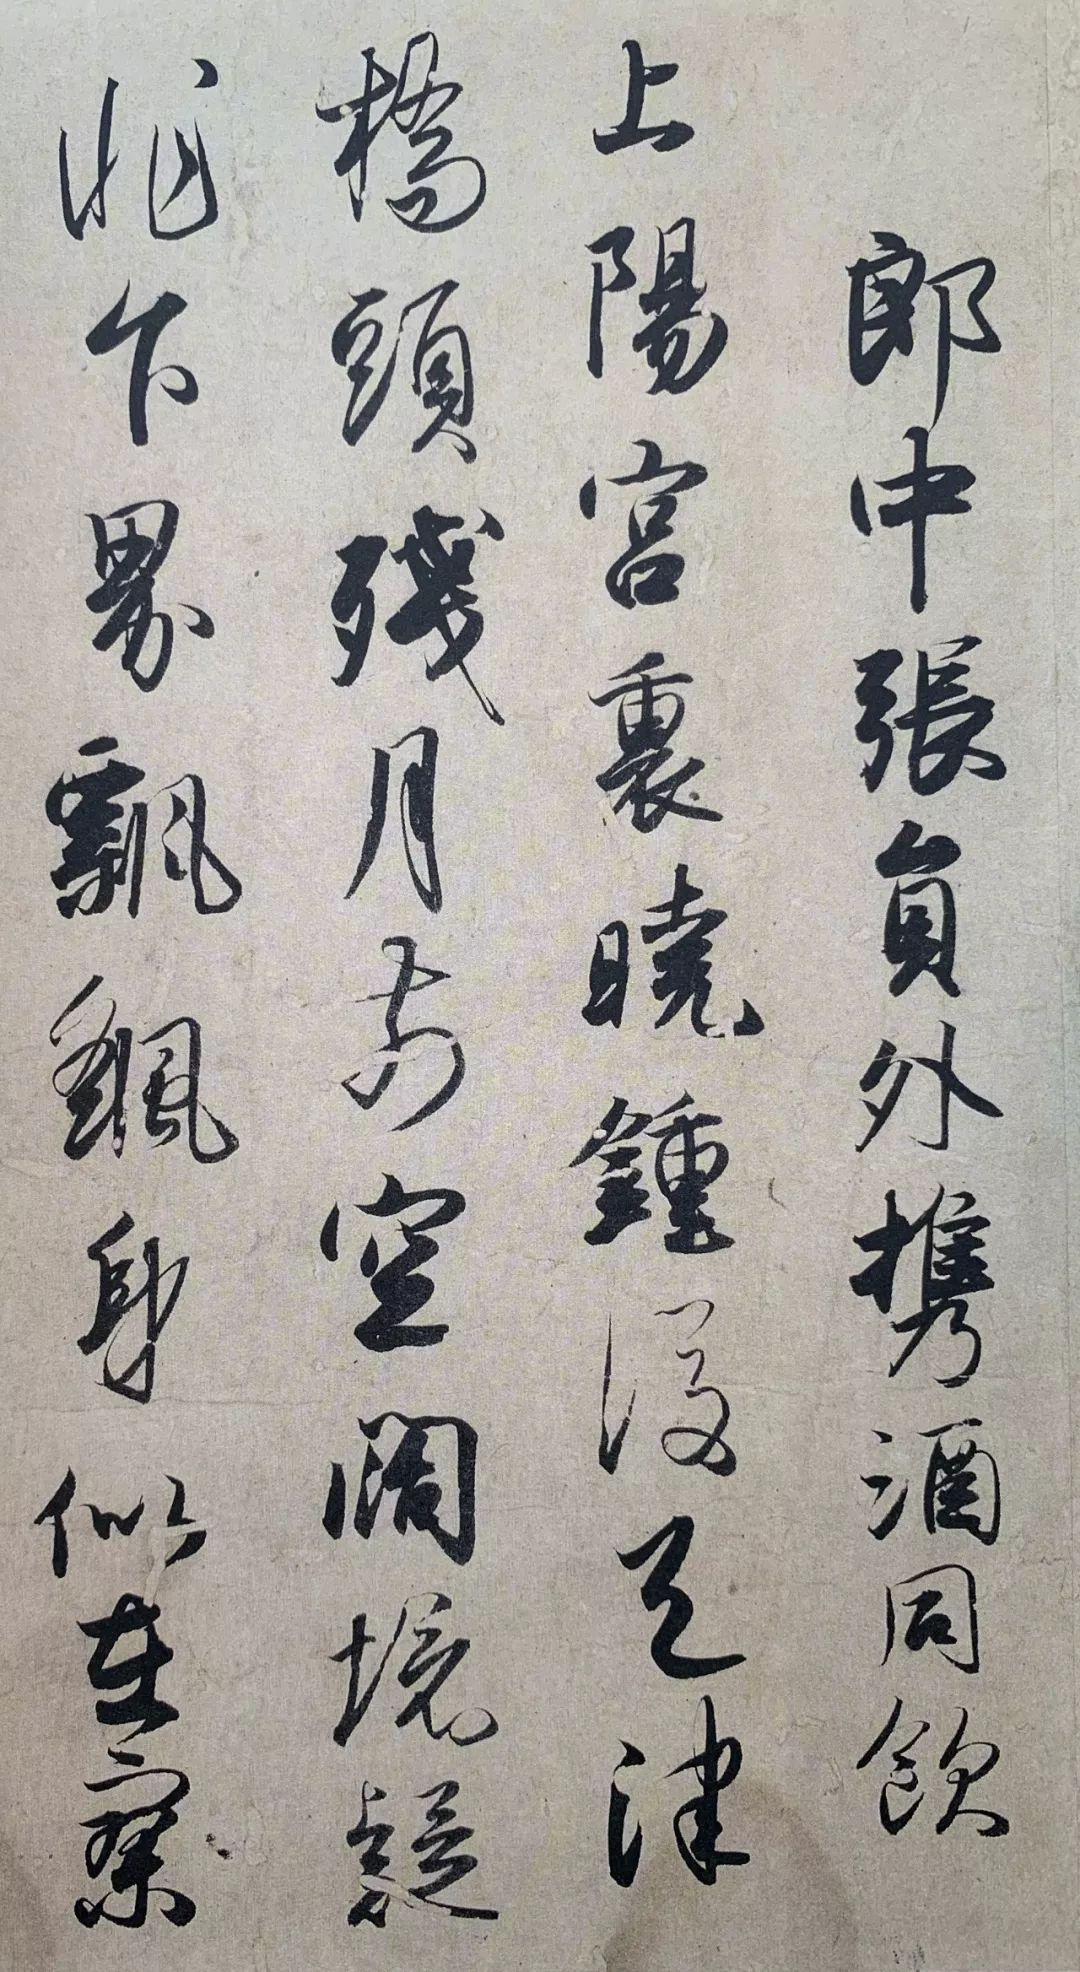 郎中張員外携酒同飲
上陽宮裏曉鍾後天津
橋頭殘月前空闊境疑
非下界飄飖身似在寥